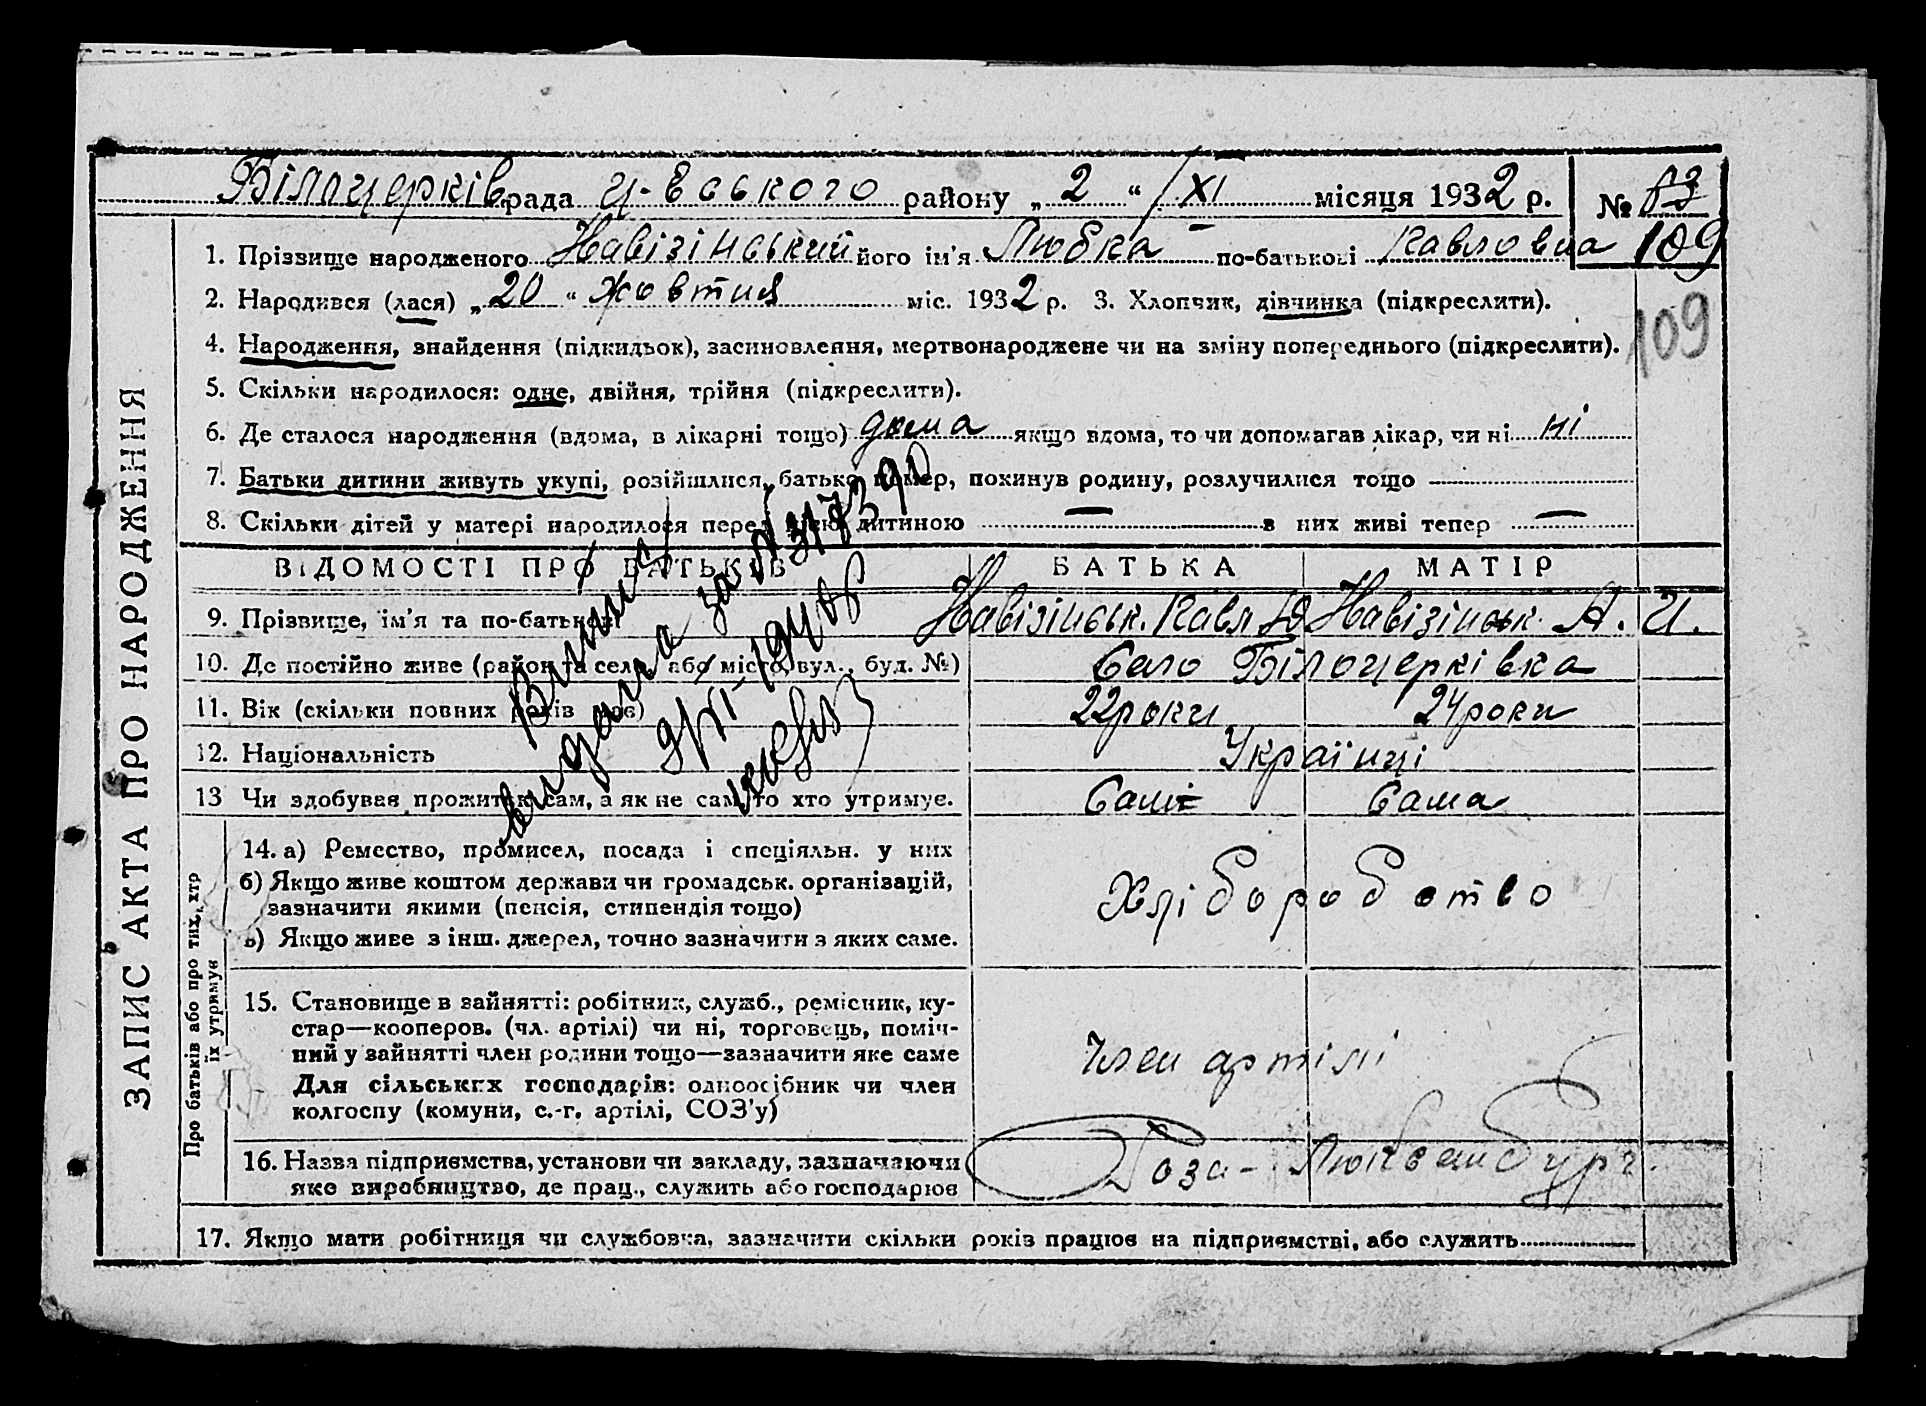 Білоцерків. рада Ц-Еського району „2“ XI місяця 1932 р. № 83
1. Прізвище народженого Навізінський його ім'я Любка по-батькові Павловна 109
2. Народився (лася) „20“ жовтня міс. 1932 р. 3. Хлопчик, дівчинка (підкреслити).
109
4. Народження, знайдення (підкидьок), засиновлення, мертвонароджене чи на зміну попереднього (підкреслити).
5. Скільки народилося: одне, двійня, трійня (підкреслити).
6. Де сталося народження (вдома, в лікарні тощо) дома якщо вдома, то чи допомагав лікар, чи ні ні
7. Батьки дитини живуть укупі, розійшлися, батько помер, покинув родину, розлучилися тощо
8. Скільки дітей у матері народилося перед цією дитиною — з них живі тепер —
ВІДОМОСТІ ПРО БАТЬКІВ БАТЬКА МАТІР
9. Прізвище, ім'я та по-батькові Навізінськ. Павл Ю Навізінськ. А. И.
10. Де постійно живе (район та село, або місто, вул., буд. №) Село Білоцерківка
11. Вік (скільки повних років має) 22 роки 24 роки
12. Національність Українці
13 Чи здобував прожиток сам, а як не сам, то хто утримує. Самі Сама
14. а) Ремество, промисел, посада і спеціяльн. у них
б) Якщо живе коштом держави чи громадськ. організацій,
зазначити якими (пенсія, стипендія тощо)
в) Якщо живе з інш. джерел, точно зазначити з яких саме.
Хліборобство
15. Становище в зайнятті: робітник, служб., ремісник, ку-
стар—кооперов. (чл. артілі) чи ні, торговець, поміч-
ний у зайнятті член родини тощо—зазначити яке саме
Для сільських господарів: одноосібник чи член
колгоспу (комуни, с.-г. артілі, СОЗ'у)
Член артілі
16. Назва підприємства, установи чи закладу, зазначаючи
яке виробництво, де прац., служить або господарює
Роза-Люксембург.
17. Якщо мати робітниця чи службовка, зазначити скільки років працює на підприємстві, або служить
ЗАПИС АКТА ПРО НАРОДЖЕННЯ
Про батьків або про тих, хто
їх утримує
видана за №